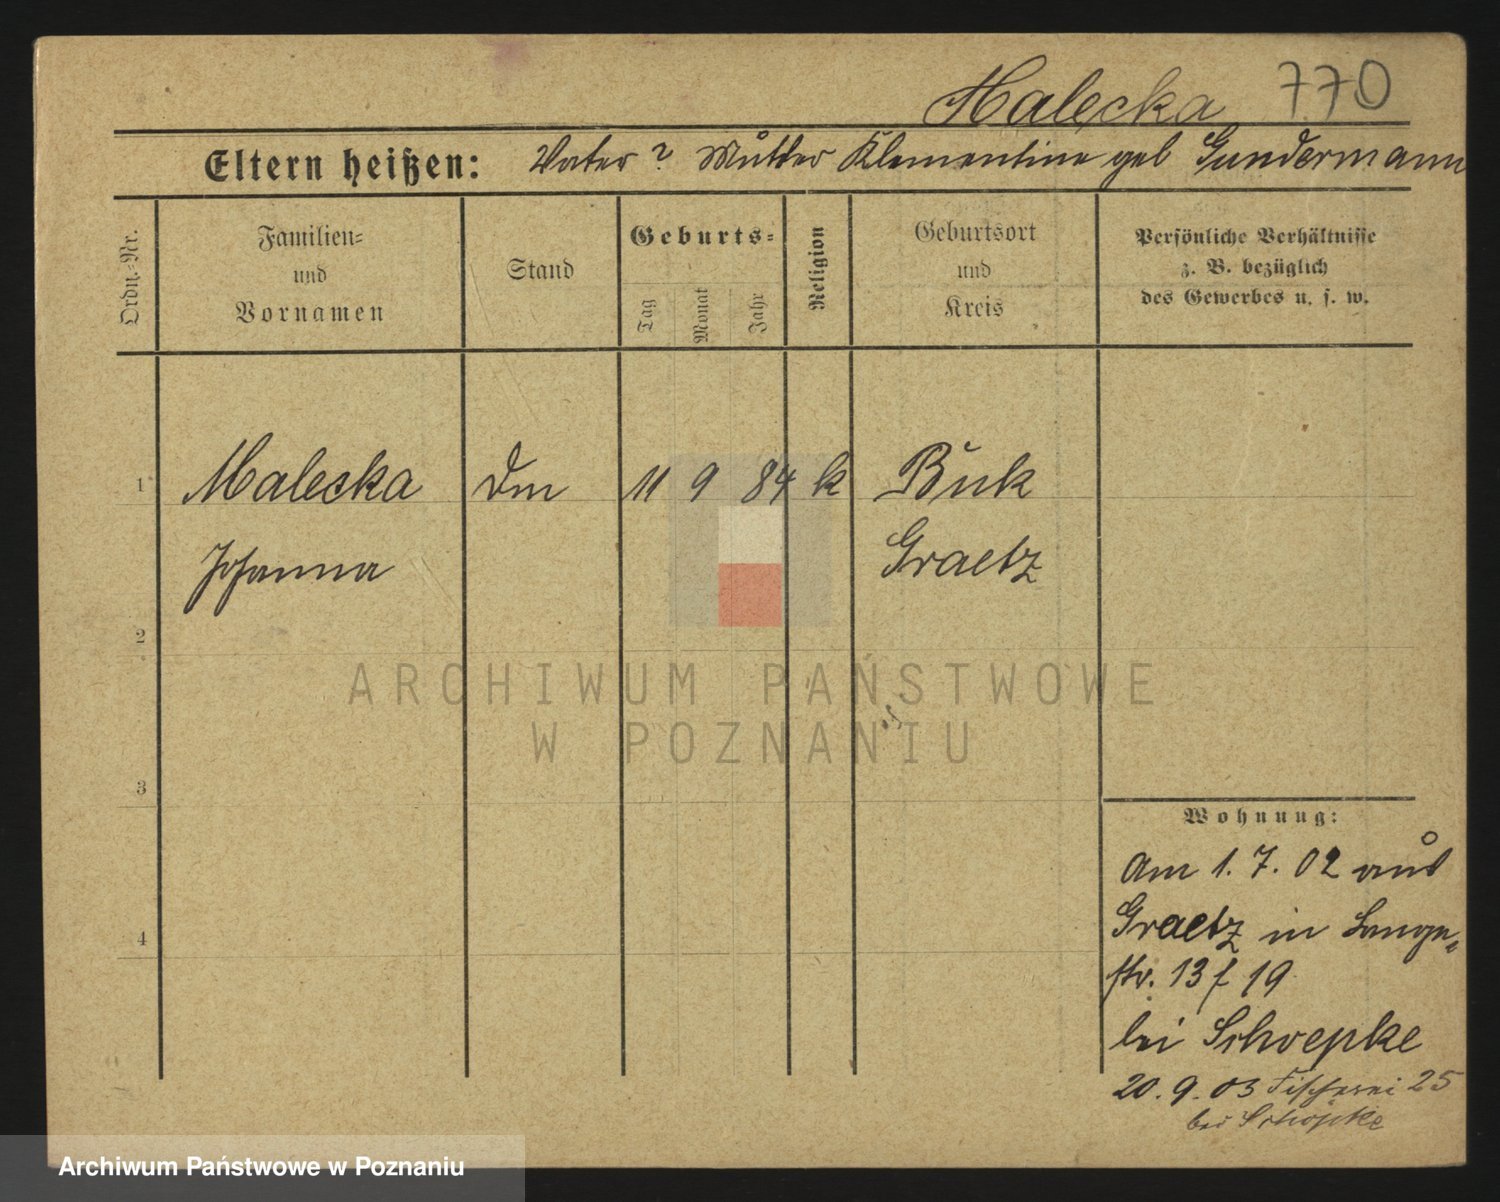 Malecka 770
Eltern heißen: Vater ? Mutter Klementine geb Gundermann
Ordn.-Nr.
Familien-
und
Vornamen
Stand
Geburts-
Tag
Monat
Jahr
Religion
Geburtsort
und
Kreis
Persönliche Verhältnisse
z. B. bezüglich
des Gewerbes u. s. w.
1 Malecka 11 9 84 k Buk
Johanna Graetz
2
3
4
Wohnung:
Am 1. 7. 02 aus
Graetz in Lange-
str. 13 f 19
bei Schoepke
20. 9. 03 Fischerei 25
bei Schöpke
ARCHIWUM PAŃSTWOWE
W POZNANIU
Archiwum Państwowe w Poznaniu